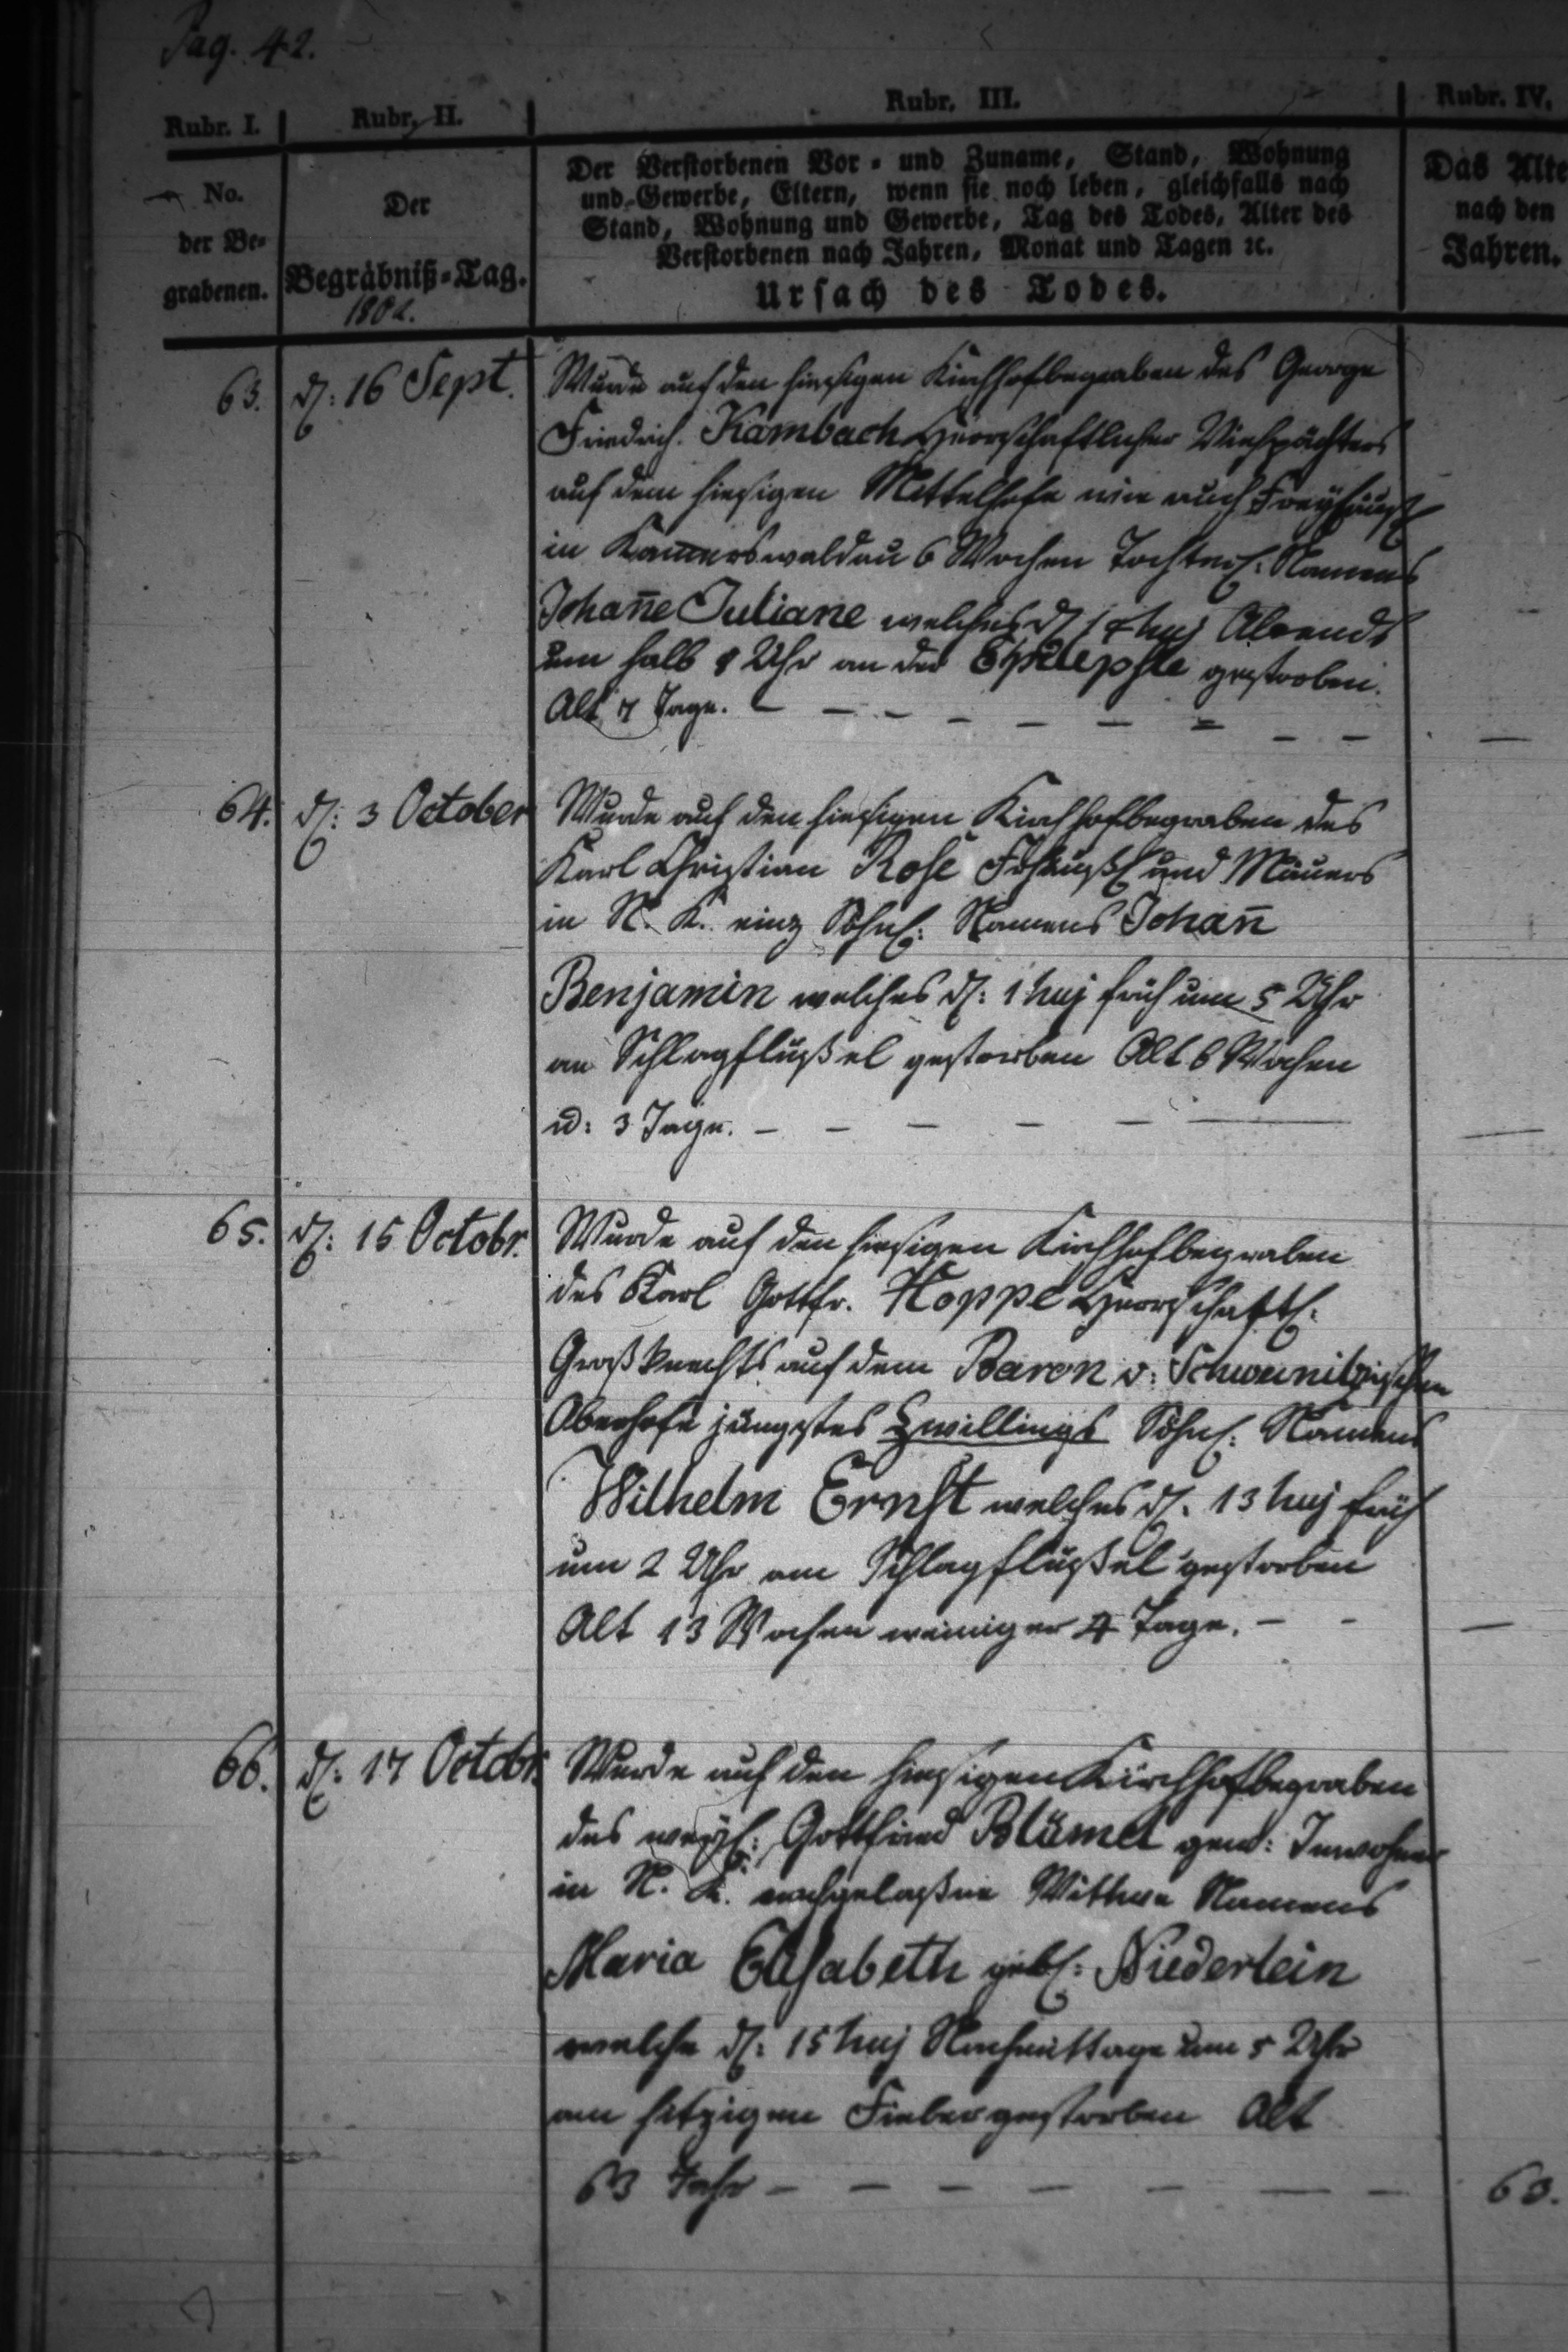 Pag. 42.
Rubr. I. Rubr. II. Rubr. III. Rubr. IV.
No. der Be-grabenen.
Der Begräbniß-Tag.
1802.
Der Verstorbenen Vor- und Zuname, Stand, Wohnung
und Gewerbe, Eltern, wenn sie noch leben, gleichfalls nach
Stand, Wohnung und Gewerbe, Tag des Todes, Alter des
Verstorbenen nach Jahren, Monat und Tagen ꝛc.
Ursach des Todes.
Das Alte
nach den
Jahren.
63. d. 16 Sept. Wurde auf den hiesigen Kirchhof begraben des George
Friedrich Kambach Herrschaftlicher Viehpächters
auf dem hiesigen Mittelhofe wie auch Freyhäusl
in Kam̅erswaldau 6 Wochen Töchterl: Namens
Johan̅e Juliane welches d. 14 huj Abends
um halb 8 Uhr an der Epilepsie gestorben.
Alt 7 Tage. — — — — — — — — —
64. d: 3 October Wurde auf den hiesigen Kirchhof begraben des
Karl Christian Rose Frhäusl und Mäuers
in N. K. einz Söhnl: Namens Johan̅
Benjamin welches d: 1 huj früh um 5 Uhr
an Schlagflüßel gestorben Alt 6 Wochen
u: 3 Tage. — — — — — —
65. d: 15 Octobr. Wurde auf den hiesigen Kirchhof begraben
des Karl Gottfr. Hoppe Herrschaftl:
Großknechts auf dem Baron v: Schweinitzischen
Oberhofe jüngstes Zwillings Söhnl: Namens
Wilhelm Ernst welches d. 13 huj früh
um 2 Uhr am Schlagflüßel gestorben
Alt 13 Wochen weniger 4 Tage. — — —
66. d: 17 Octobr. Wurde auf den hiesigen Kirchhof begraben
des weyl: Gottfried Blümel gew: Inwohner
in N. K. nachgelaßne Wittwe Namens
Maria Elisabeth gebl: Niederlein
welche d: 15 huj Nachmittage um 5 Uhr
am hitzigen Fieber gestorben Alt
63 Jahr — — — — — — — 63.